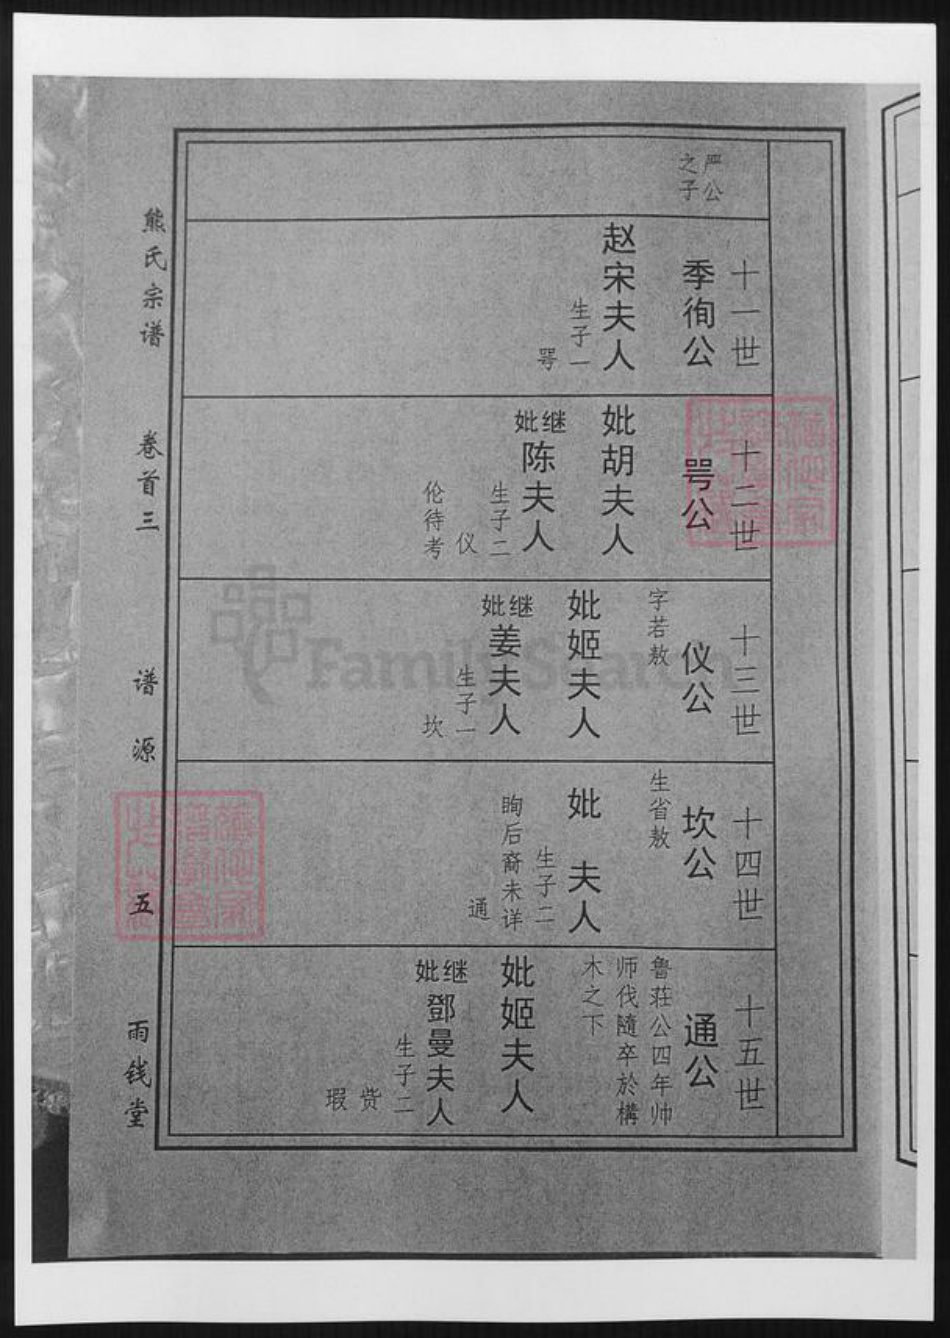 严公
之子
十一世
季徇公
赵宋夫人
生子一
咢
十二世
咢公
妣胡夫人
继妣
陈夫人
生子二
仪
伦待考
十三世
仪公
字若敖
妣姬夫人
继妣
姜夫人
生子一
坎
十四世
坎公
生省敖
妣 夫人
生子二
眴后裔未详
通
十五世
通公
鲁荘公四年帅
师伐隨卒於構
木之下
妣姬夫人
继妣
鄧曼夫人
生子二
赀
瑕
熊氏宗谱 卷首三 谱源 五 雨钱堂
FamilySearch